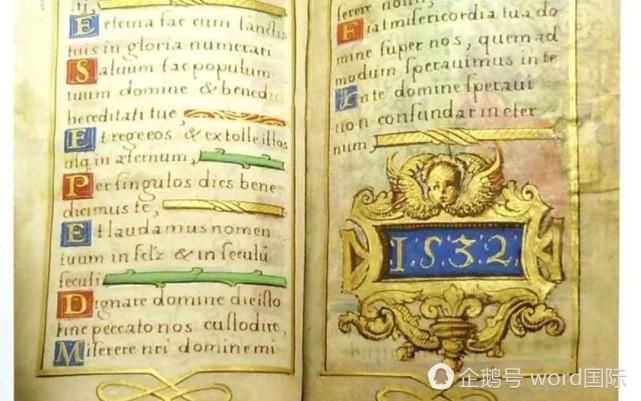 E eterna fac cum sanctis
tuis in gloria numerari
Saluum fac populum
tuum domine & benedic
hereditati tue,
Et rege eos & extolle illos
usq, in æternum,
Per singulos dies bene
dicimus te,
Et laudamus nomen
tuum in sec̄l & in seculū
seculi
Dignare domine die isto
sine peccato nos custodire,
Miserere nri domine mi
serere nostri
Fiat misericordia tua do
mine super nos, quem ad
modum sperauimus in te
In te domine speraui
non confundar in eter
num,
1.5.3.2.
企鹅号 word国际